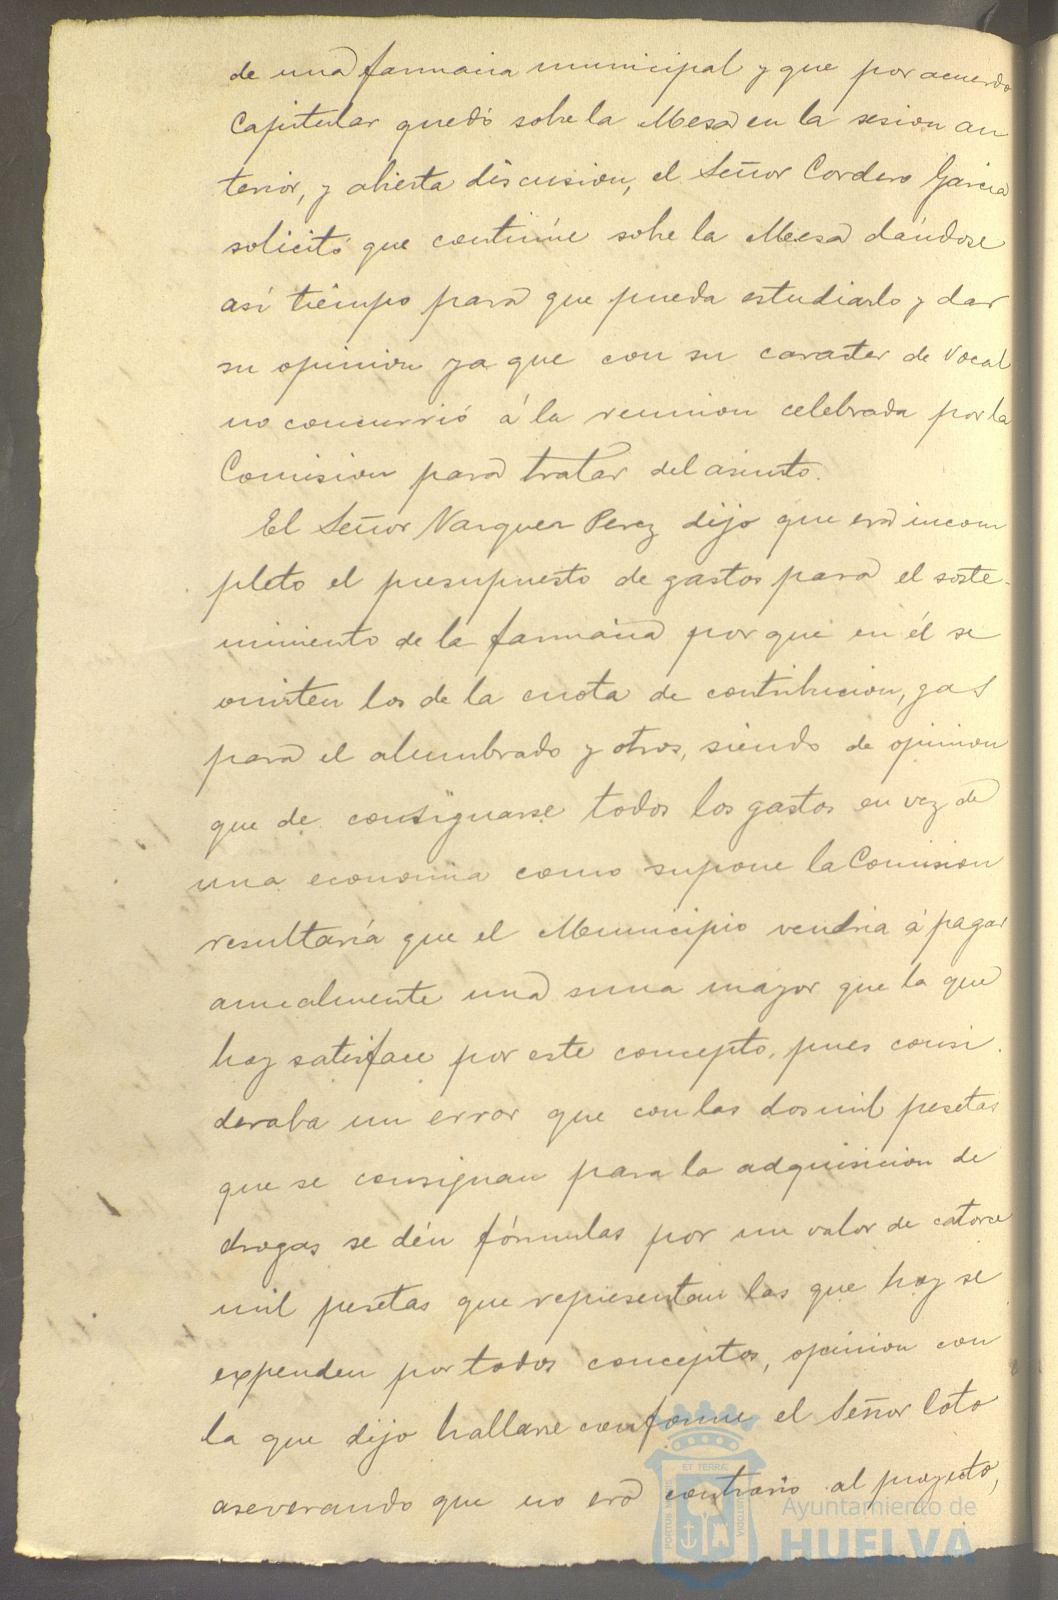 de una farmacia municipal y que por acuerdo
Capitular quedó sobre la Mesa en la sesion an
terior, y abierta discusion, el Señor Cordero Garcia
solicitó que continúe sobre la Mesa dándose
así tiempo para que pueda estudiarlo y dar
su opinion ya que con su caracter de Vocal
no concurrió á la reunion celebrada por la
Comision para tratar del asunto.
El Señor Vazquez Perez dijo que era incom
pleto el presupuesto de gastos para el soste-
nimiento de la farmacia por que en él se
omiten los de la cuota de contribucion, gas
para el alumbrado y otros, siendo de opinion
que de consignarse todos los gastos en vez de
una economia como supone la Comision
resultaría que el Municipio vendria á pagar
anualmente una suma mayor que la que
hoy satisface por este concepto, pues consi
deraba un error que con las dos mil pesetas
que se consignan para la adquisicion de
drogas se dén fórmulas por un valor de catorce
mil pesetas que representan las que hoy se
expenden por todos conceptos, opinion con
la que dijo hallarse conforme el Señor Coto
aseverando que no era contrario al proyecto,
ET TERRÆ
PORTUS MARIS
CUSTODIA
Ayuntamiento de
HUELVA